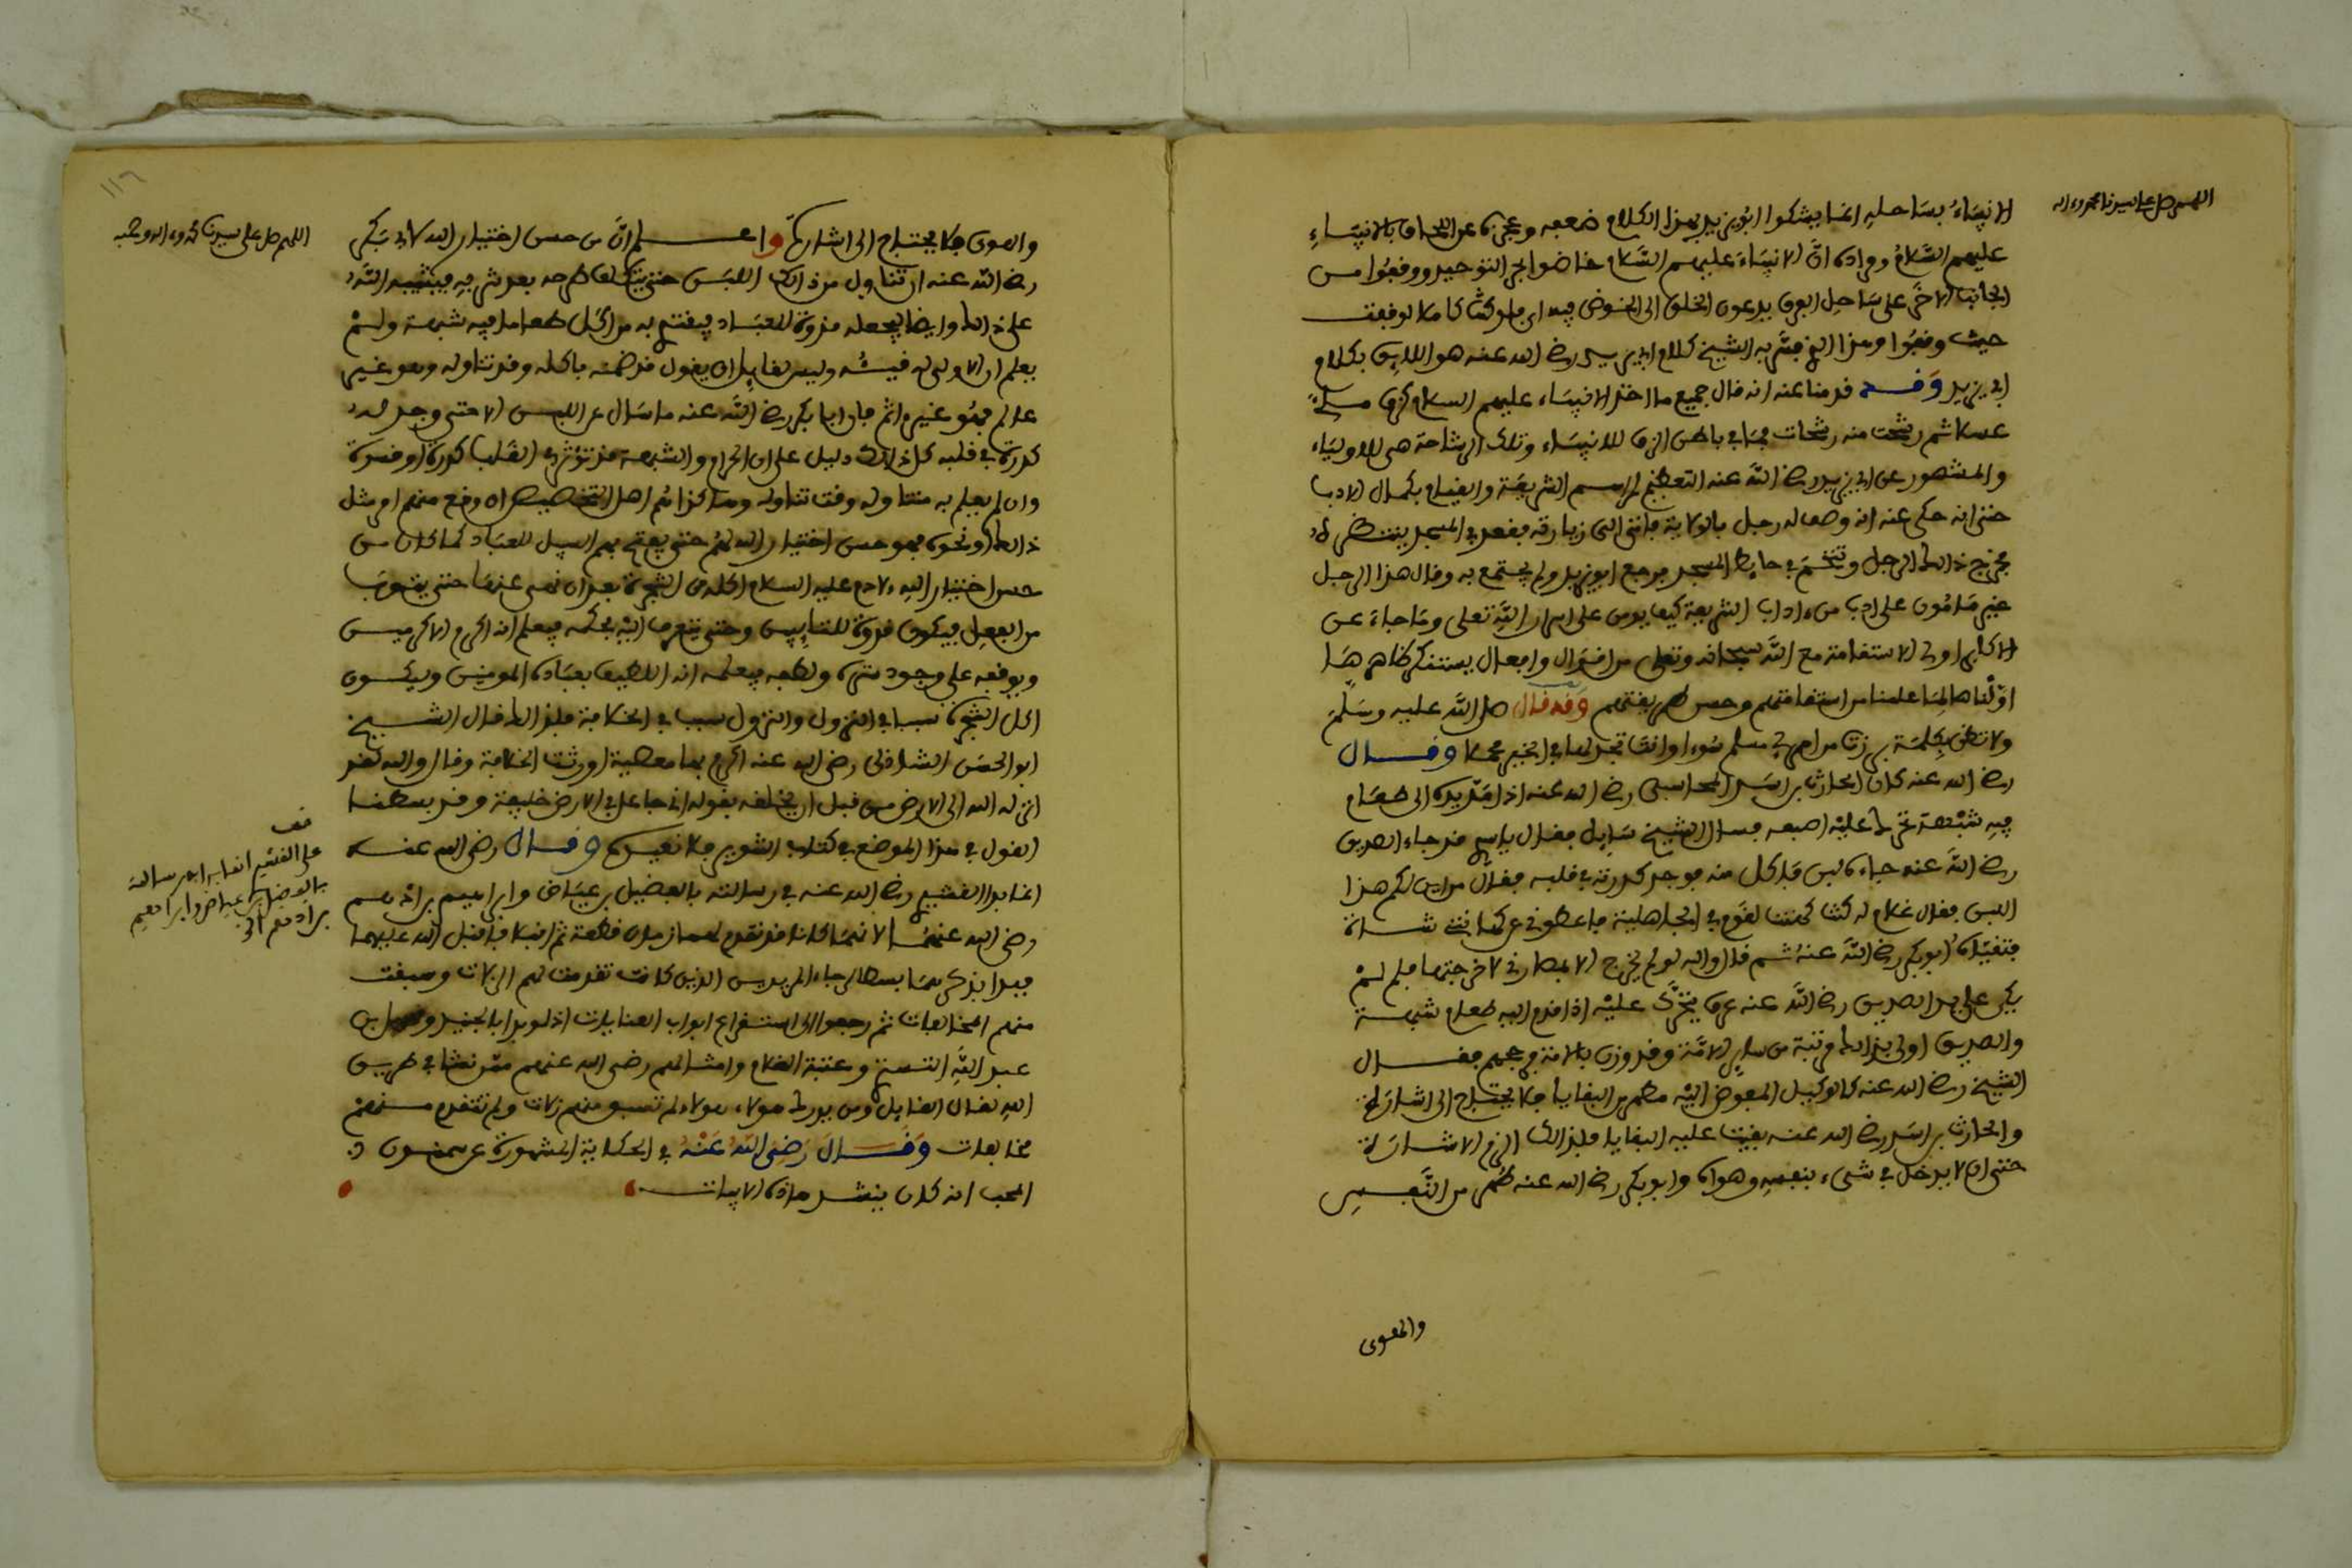 اللهم صل على سيدنا محمد وءاله
الانبياء بساحله انما يشكوا ابويزيد بهذا الكلام ضعفه وعجزه عن اللحاق بالانبياء
عليهم السلام ومراده ان الانبياء عليهم السلام خاضوا بحر التوحيد ووقفوا من
الجانب الاخر على ساحل الفرق يدعون الخلق الى الخوض فيه اي فلو كنت كاملا لوقفت
حيث وقفوا وهذا الذي فسر به الشيخ كلام ابي يزيد رضي الله عنه هو اللايق بكلام
ابي يزيد وقد قدمنا عنه انه قال جميع ما اخذ الانبياء عليهم السلام كزق ملئ
عسلا ثم رشحت منه رشحات فما في باطن الزق للانبياء وتلك الرشاحة هي للاولياء
والمشهور عن ابي يزيد رضي الله عنه التعظيم لمراسم الشريعة والقيام بكمال الادب
حتى انه حكي عنه انه وصف له رجل بالولاية فاتى الى زيارته فقعد في المسجد ينتظره
فخرج ذالك الرجل وتنخم في حايط المسجد فرجع ابويزيد ولم يجتمع به وقال هذا الرجل
غير مامون على ادب من ءاداب الشريعة كيف يومن على اسرار الله تعلى وما جاء عن
الاكابر اولى الاستقامة مع الله سبحانه وتعلى من اقوال وافعال يستنكر ظاهرها
اولناها لما علمنا من استقامتهم وحسن طريقتهم وقد قال صلى الله عليه وسلم
ولا تظن بكلمة برزت من امرئ مسلم سوءا وانت تجد لها في الخير محملا وقال
رضي الله عنه كان الحارث بن اسد المحاسبي رضي الله عنه اذا مد يده الى طعام
فيه شبهة تحرك عليه اصبعه فسال الشيخ سايل فقال ياسيدي قد جاء الصديق
رضي الله عنه جاءه لبن فاكل منه فوجد كدرته في قلبه فقال من اين لكم هذا
اللبن فقال غلام له كنت كهنت لقوم في الجاهلية فاعطوني عن كهانتي شاة
فتقيأه ابوبكر رضي الله عنه ثم قال والله لو لم يخرج الا بمصارني لاخرجتها فلم لم
يكن على يد الصديق رضي الله عنه عرق يتحرك عليه اذا قدم اليه طعام شبهة
والصديق اولى بذالك مرتبة من ساير الامة وقد وزن بالامة فرجحهم فقال
الشيخ رضي الله عنه كالوكيل المفوض اليه مطهر من البقايا فلا يحتاج الى اشارة
والحارث بن اسد رضي الله عنه بقيت عليه البقايا فلذالك الزم الاشارة
حتى ان لا يدخل في شيء بنفسه وهواه وابوبكر رضي الله عنه طهر من النفس
والهوى
اللهم صل على سيدنا محمد وءاله وصحبه
والهوى فلا يحتاج الى اشارة واعلم ان من حسن اختيار الله لابي بكر
رضي الله عنه ان تناول من ذالك اللبن حتى يتكلف طرحه بعد شربه فيثيبه الله
على ذالك وايضا يجعله قدوة للعباد فيقتدي به من اكل طعاما فيه شبهة ولم
يعلم ان الاولى له قيئه وليس لقايل ان يقول قد ضمنه باكله وقد تناوله وهو غير
عالم فهو غير ءاثم فان ابابكر رضي الله عنه ما سال عن اللبن الا حتى وجد له
كدرة في قلبه كل ذالك دليل على ان الحرام والشبهة قد تؤثر في القلب كدرة او قسوة
وان لم يعلم به متناوله وقت تناوله وهاكذا ثم اهل التخصيص ان وقع منهم امر مثل
ذالك او نحوه فهو حسن اختيار الله لهم حتى يفتح بهم السبيل للعباد كما كان من
حسن اختيار الله لادم عليه السلام اكله من الشجرة بعد ان نهى عنها حتى يتوب
من الفعل فيكون قدوة للتايبين وحتى يتعرف اليه بحكمه فيعلم انه اكرم الاكرمين
ويوقفه على وجود ستره ولطفه فيعلمه انه اللطيف بعباده المومنين ويكون
اكل الشجرة سببا في النزول والنزول سببا في الخلافة فلذالك قال الشيخ
ابو الحسن الشاذلي رضي الله عنه اكرم بها معصية اورثت الخلافة وقال والله لقد
انزله الله الى الارض من قبل ان يخلقه بقوله اني جاعل في الارض خليفة وقد بسطنا
القول في هذا الموضع في كتاب التنوير فلا نعيده وقال رضي الله عنه
انما بدا القشيري رضي الله عنه في رسالته بالفضيل بن عياض وابراهيم بن ادهم
رضي الله عنهما لانهما كانا قد تقدم لهما زمان قطعة ثم اقبلا فاقبل الله عليهما
فبدا بذكرهما بسطا لرجاء المريدين الذين كانت تقدمت لهم الزلات وسبقت
منهم المخالفات ثم رجعوا الى استفراغ ابواب العنايات اذ لو بدا بالجنيد وسهل بن
عبد الله التستري وعتبة الغلام وامثالهم رضي الله عنهم ممن نشا في طريق
الله لقال القايل ومن يدرك هولاء هولاء لم تسبق منهم زلات ولم تتقدم منهم
مخالفات وقال رضي الله عنه في الحكاية المشهورة عن سمنون
المحب انه كان ينشد هاذه الابيات
قف
على القشيري انما بدا في رسالته
بالفضيل بن عياض وابراهيم
بن ادهم الخ
١١٦